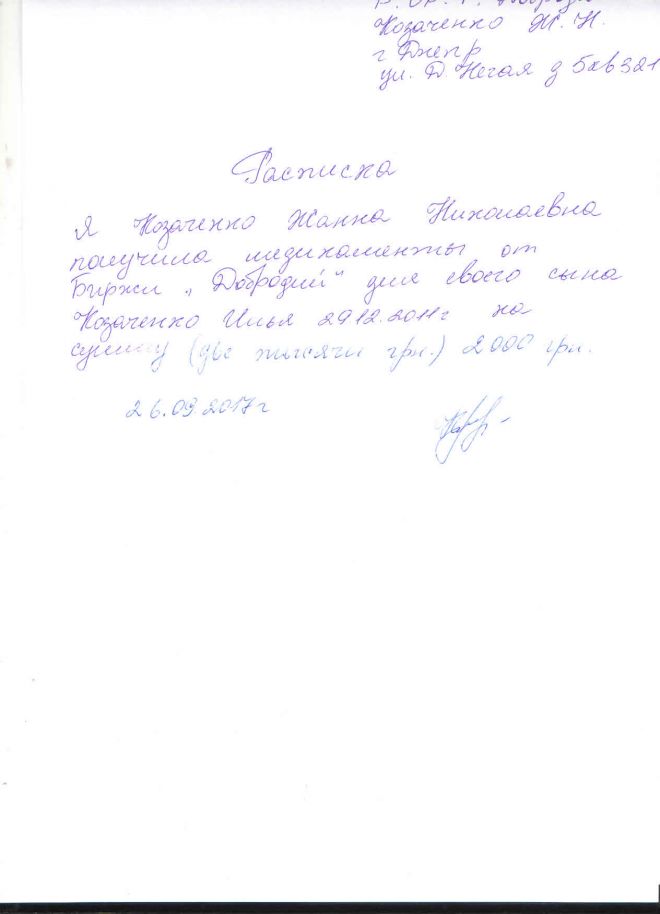 Козаченко Ж. Н.
г Днепр
ул. Д Нечая д 5 кв 321
Расписка
Я Козаченко Жанна Николаевна
получила медикаменты от
Биржи „Добродий" для своего сына
Козаченко Илья 29.12.2011г на
сумму (две тысячи грн.) 2000 грн.
26.09 2017 г